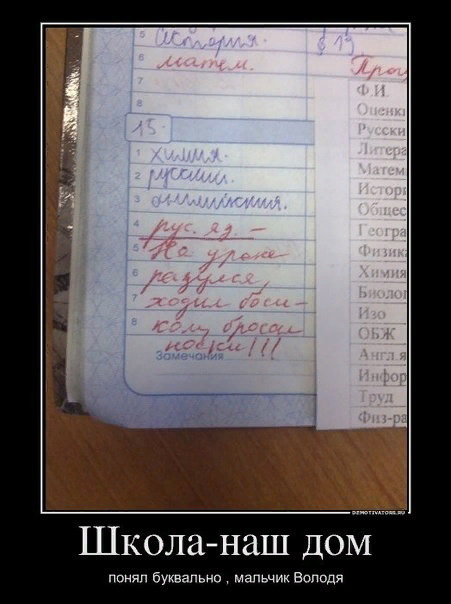 5 История. § 19
6 матем.
7
8
15.
1 химия.
2 русский.
3 английский.
4 рус. яз –
5 На уроке
6 разулся,
7 ходил боси-
8 ком, бросал
носки!!!
Замечания
Ф.И.
Оценки
Русски
Литера
Матем
Истори
Общес
Геогра
Физик
Химия
Биолог
Изо
ОБЖ
Англ.я
Инфор
Труд
Физ-ра
DEMOTIVATORS.RU
Школа-наш дом
понял буквально , мальчик Володя